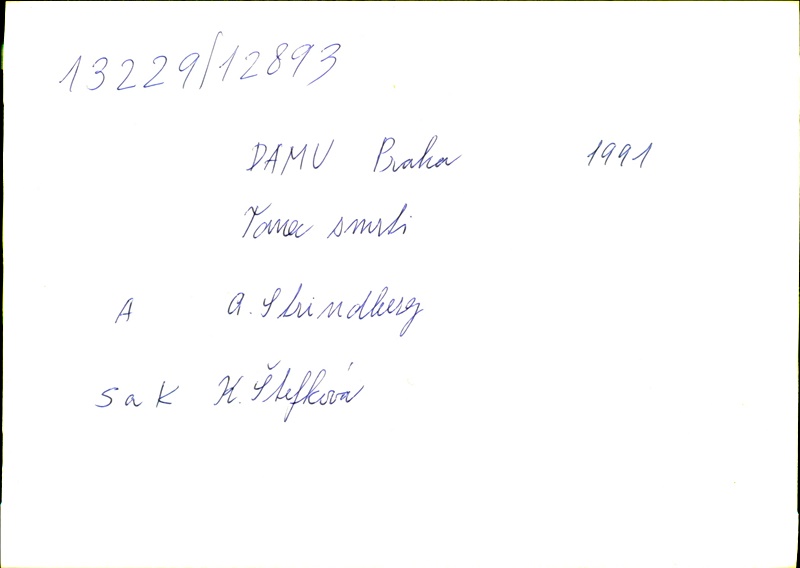 13229/12893
DAMU Praha 1991
Tanec smrti
A A. Strindberg
S a K K. Štefková